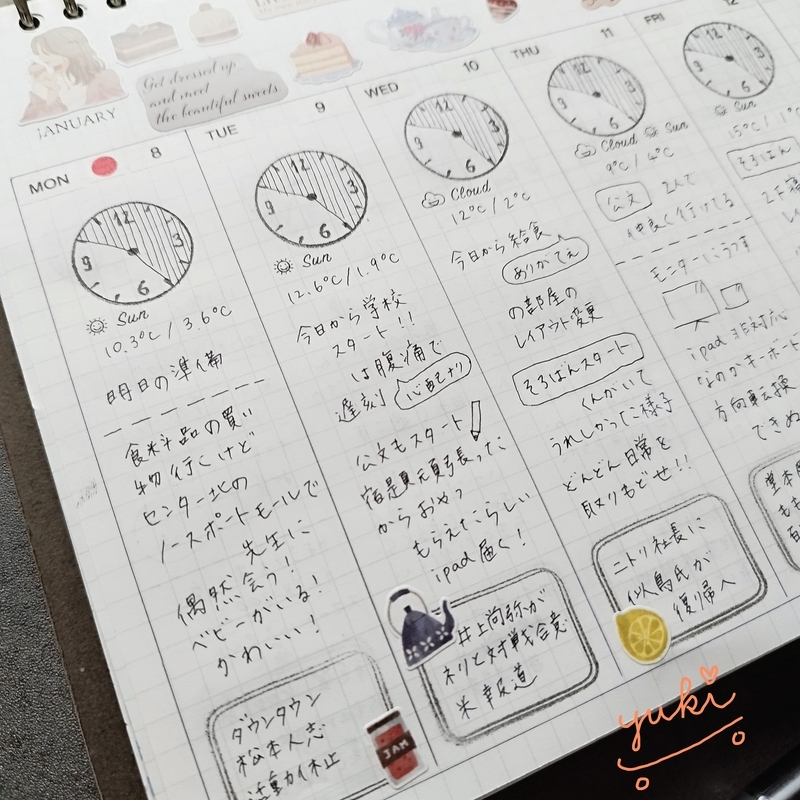 Get dressed up
and meet
the beautiful sweets.
JANUARY
MON
8
12
3
6
9
Sun
10.3℃ / 3.6℃
明日の準備
食料品の買い
物行くけど
センター北の
ノースポートモールで
先生に
偶然会う!
ベビーがいる!
かわいい!
ダウンタウン
松本人志
活動休止
JAM
TUE
9
12
3
6
9
Sun
12.6℃/1.9℃
今日から学校
スタート!!
は腹痛で
遅刻
心配ナリ
公文もスタート
宿題頑張った
からおやつ
もらえたらしい
ipad届く!
井上尚弥が
ネリと対戦合意
米報道
WED
10
12
3
6
9
Cloud
12℃/2℃
今日から給食
ありがてえ
の部屋の
レイアウト変更
そろばんスタート
くんがいて
うれしかった様子
どんどん日常を
取りもどせ!!
ニトリ社長に
似鳥氏が
復帰へ
THU
11
12
3
6
9
Cloud Sun
9℃/4℃
公文 2人で
仲良く行けてる
モニターにうつす
ipad 非対応
なのがキーボード
方向転換
できぬ
FRI
12
12
3
6
9
Sun
15℃/1℃
そろばん
yuki